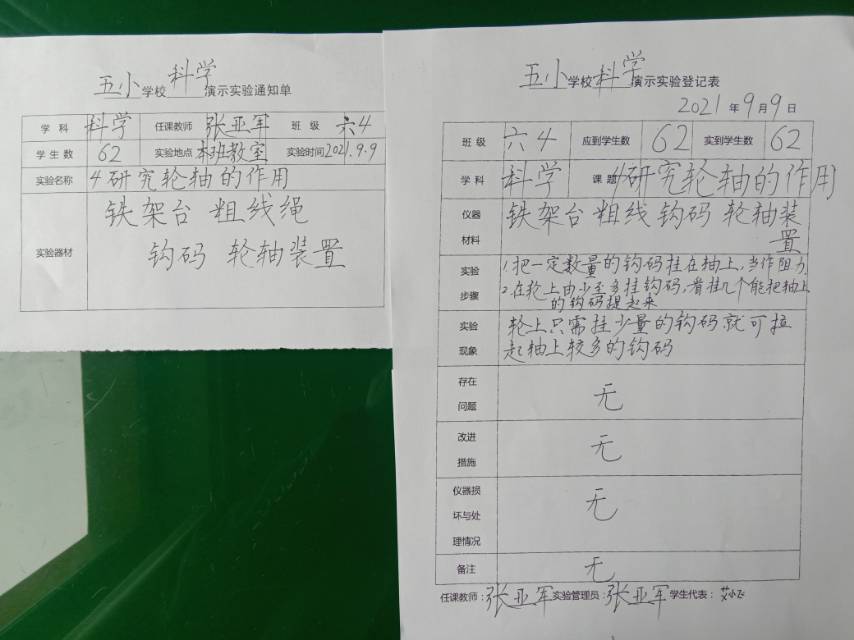 五小学校科学演示实验通知单
学科 科学 任课教师 张亚军 班级 六4
学生数 62 实验地点 本班教室 实验时间 2021.9.9
实验名称 4研究轮轴的作用
实验器材 铁架台 粗线绳
钩码 轮轴装置
五小学校科学演示实验登记表
2021年9月9日
班级 六4 应到学生数 62 实到学生数 62
学科 科学 课题 4研究轮轴的作用
仪器材料 铁架台 粗线 钩码 轮轴装
置
实验步骤 1.把一定数量的钩码挂在轴上,当作阻力
2.在轮上由少至多挂钩码,看挂几个能把轴上
的钩码提起来
实验现象 轮上只需挂少量的钩码就可拉
起轴上较多的钩码
存在问题 无
改进措施 无
仪器损坏与处理情况 无
备注 无
任课教师:张亚军 实验管理员:张亚军 学生代表: